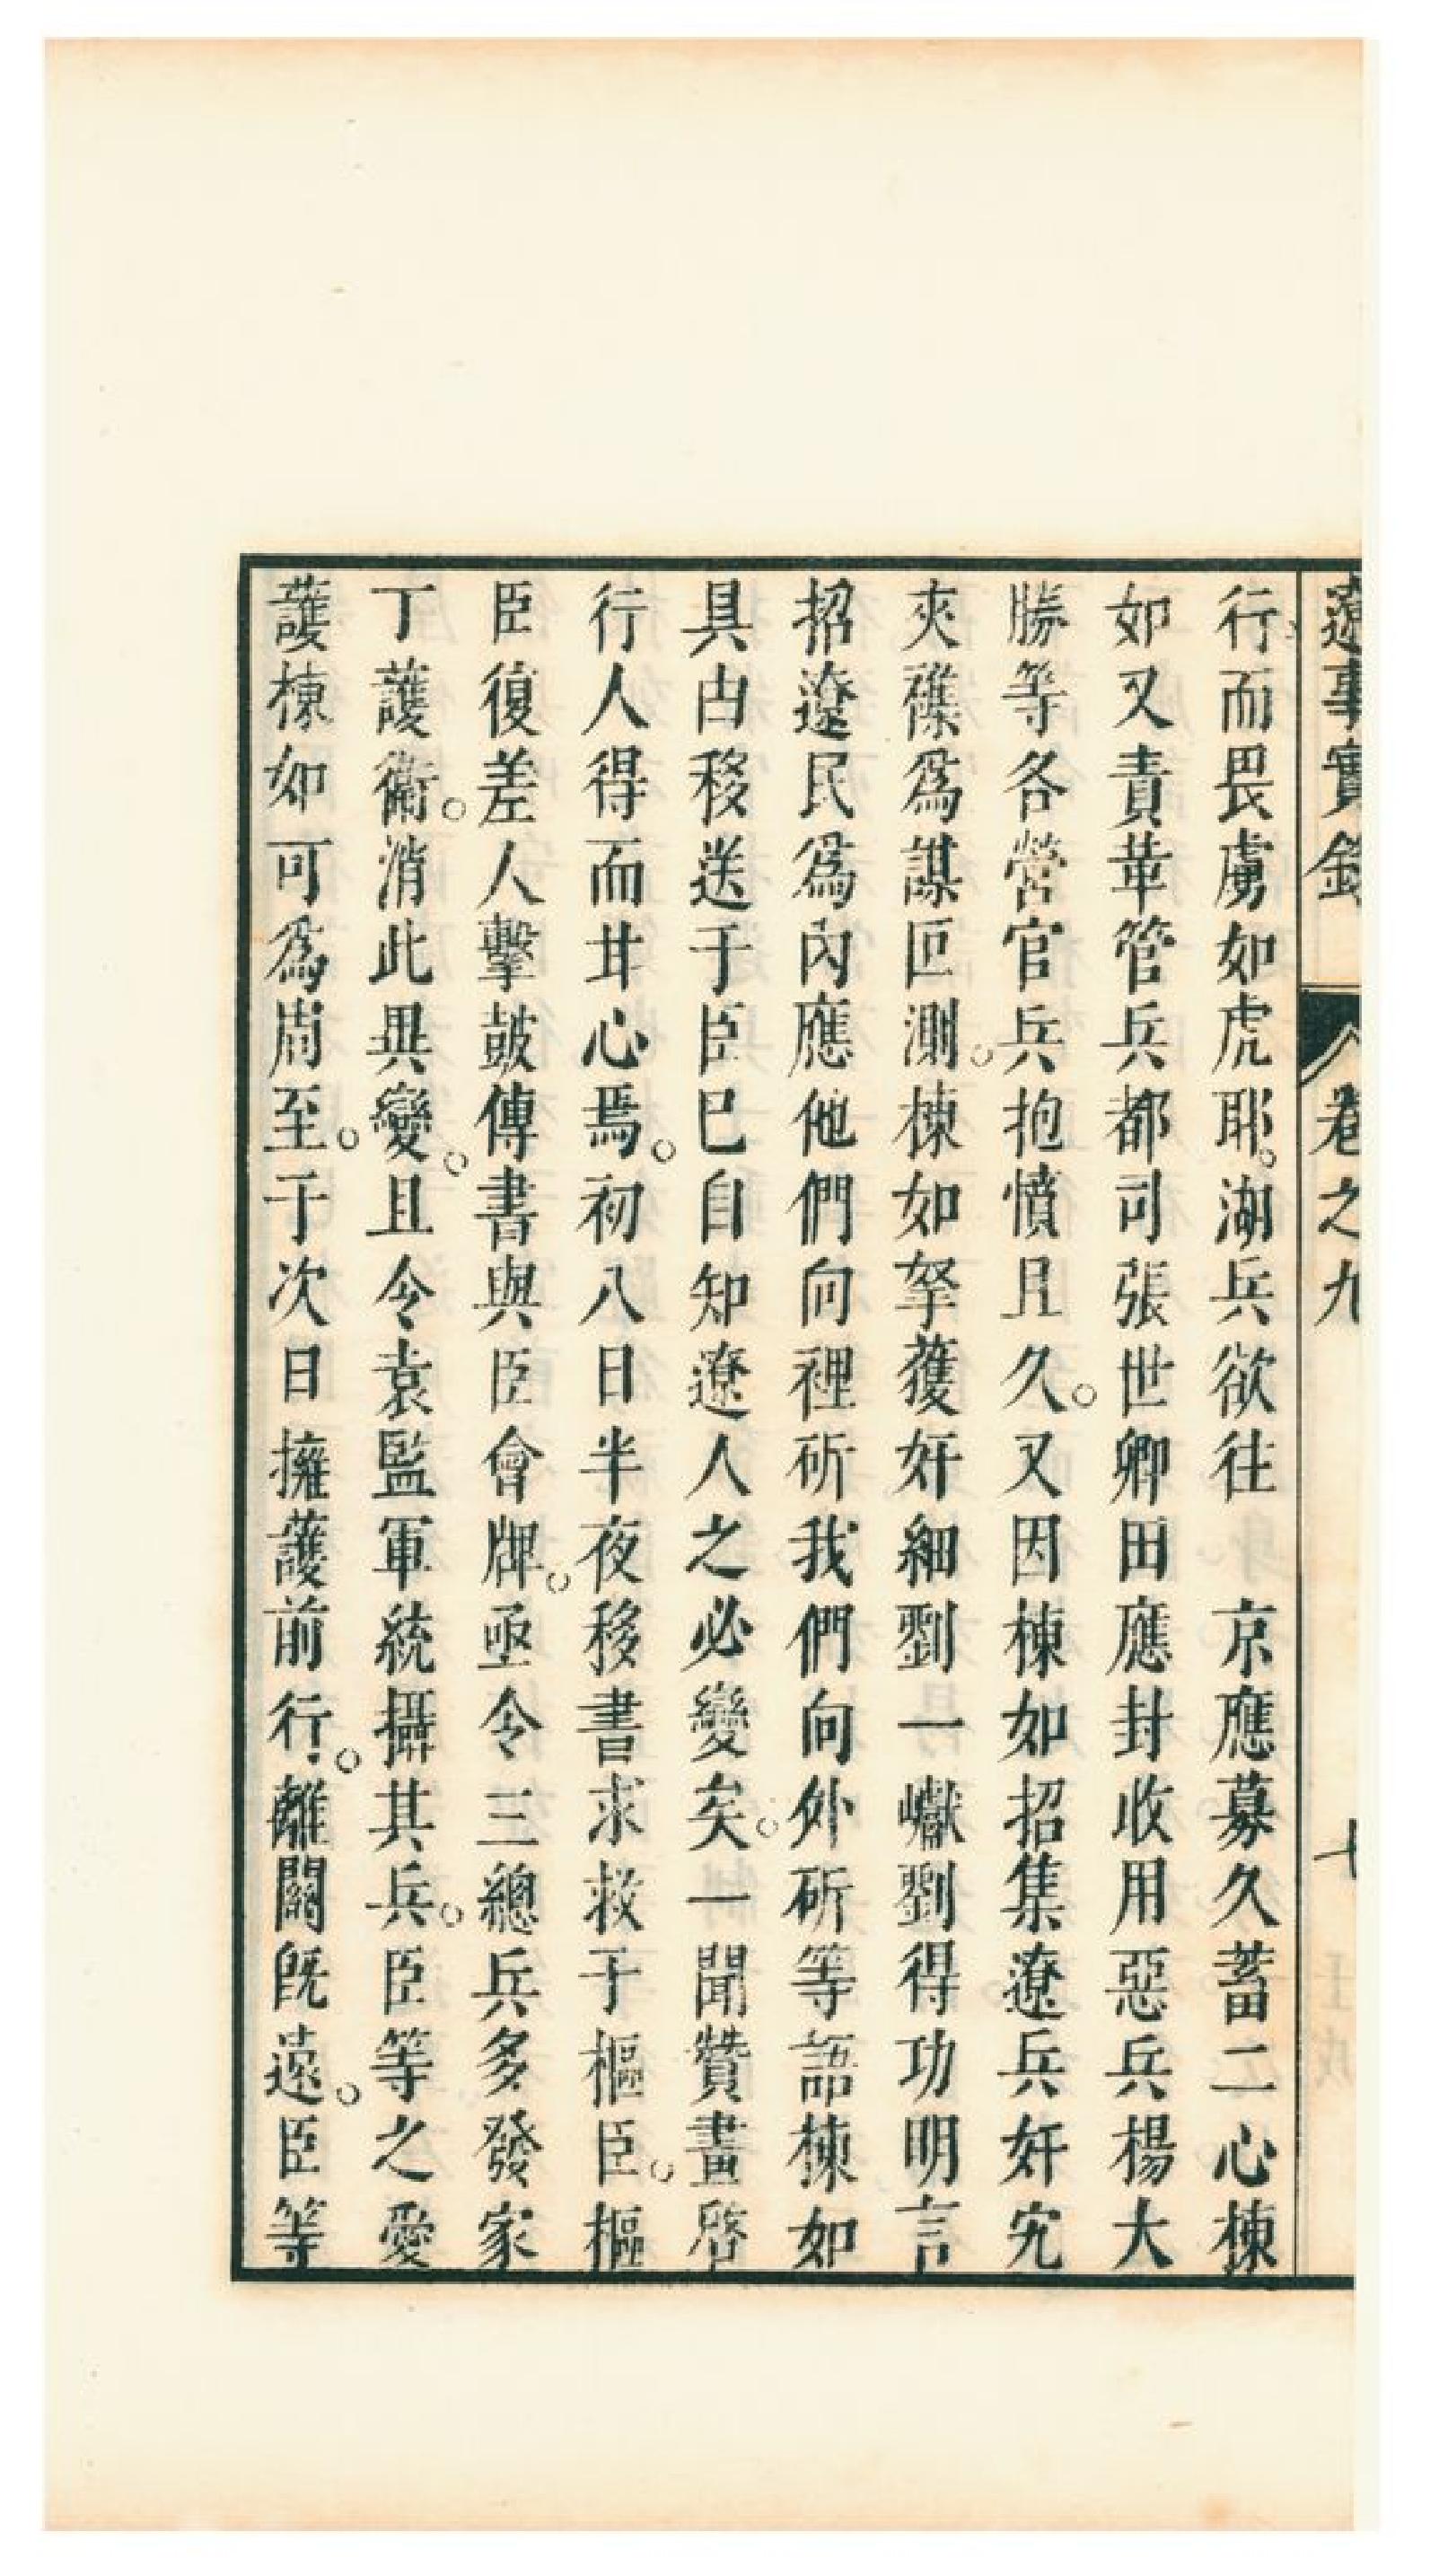 遼事實錄 卷之九 七
行而畏虜如虎耶湖兵欲往 京應募久蓄二心棟
如又責革管兵都司張世卿田應封收用惡兵楊大
勝等各營官兵抱憤且久又因棟如招集遼兵奸宄
夾襍爲謀叵測棟如拏獲奸細劉一巘劉得功明言
招遼民爲內應他們向裡斫我們向外斫等語棟如
具由移送于臣已自知遼人之必變矣一聞贊畫啓
行人得而甘心焉初八日半夜移書求救于樞臣樞
臣復差人擊鼓傳書與臣會牌亟令三總兵多發家
丁護衛消此異變且令袁監軍統攝其兵臣等之愛
護棟如可爲周至于次日擁護前行離關旣遠臣等